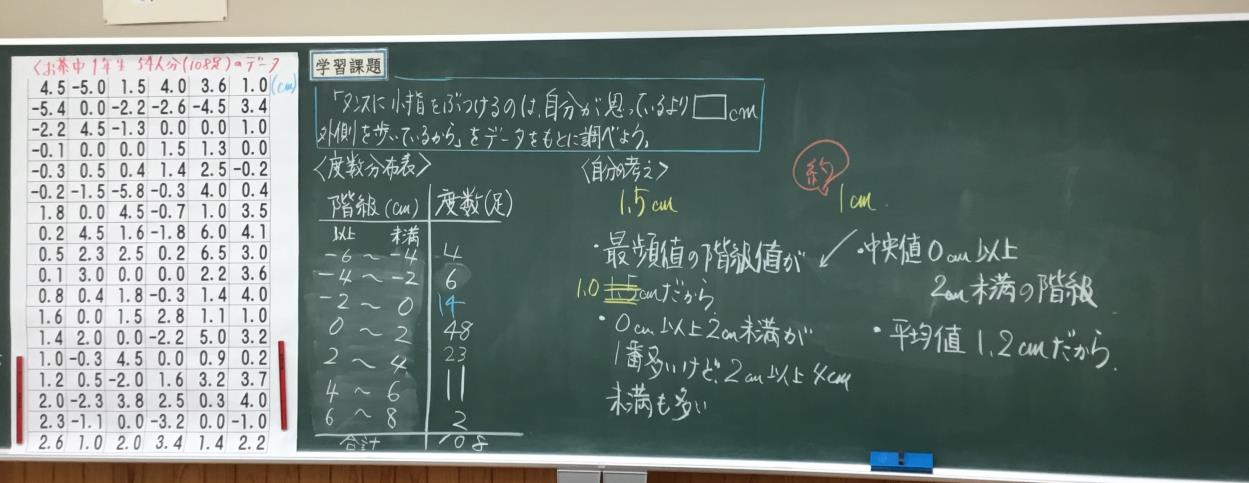 <お茶中1年生 54人分(108足)のデータ
4.5 -5.0 1.5 4.0 3.6 1.0 (cm)
-5.4 0.0 -2.2 -2.6 -4.5 3.4
-2.2 4.5 -1.3 0.0 0.0 1.0
-0.1 0.0 0.0 1.5 1.3 0.0
-0.3 0.5 0.4 1.4 2.5 -0.2
-0.2 -1.5 -5.8 -0.3 4.0 0.4
1.8 0.0 4.5 -0.7 1.0 3.5
0.2 4.5 1.6 -1.8 6.0 4.1
0.5 2.3 2.5 0.2 6.5 3.0
0.1 3.0 0.0 0.0 2.2 3.6
0.8 0.4 1.8 -0.3 1.4 4.0
1.6 0.0 1.5 2.8 1.1 1.0
1.4 2.0 0.0 -2.2 5.0 3.2
1.0 -0.3 4.5 0.0 0.9 0.2
1.2 0.5 -2.0 1.6 3.2 3.7
2.0 -2.3 3.8 2.5 0.3 4.0
2.3 -1.1 0.0 -3.2 0.0 -1.0
2.6 1.0 2.0 3.4 1.4 2.2
学習課題
「タンスに小指をぶつけるのは、自分が思っているより□cm
外側を歩いているから」をデータをもとに調べよう。
<度数分布表>
階級(cm) 度数(足)
以上 未満
-6 ~ -4 4
-4 ~ -2 6
-2 ~ 0 14
0 ~ 2 48
2 ~ 4 23
4 ~ 6 11
6 ~ 8 2
合計 108
<自分の考え>
1.5cm
・最頻値の階級値が
1.0 1.5cmだから
・0cm以上2cm未満が
1番多いけど、2cm以上4cm
未満も多い
約
1cm.
・中央値0cm以上
2cm未満の階級
・平均値1.2cmだから.